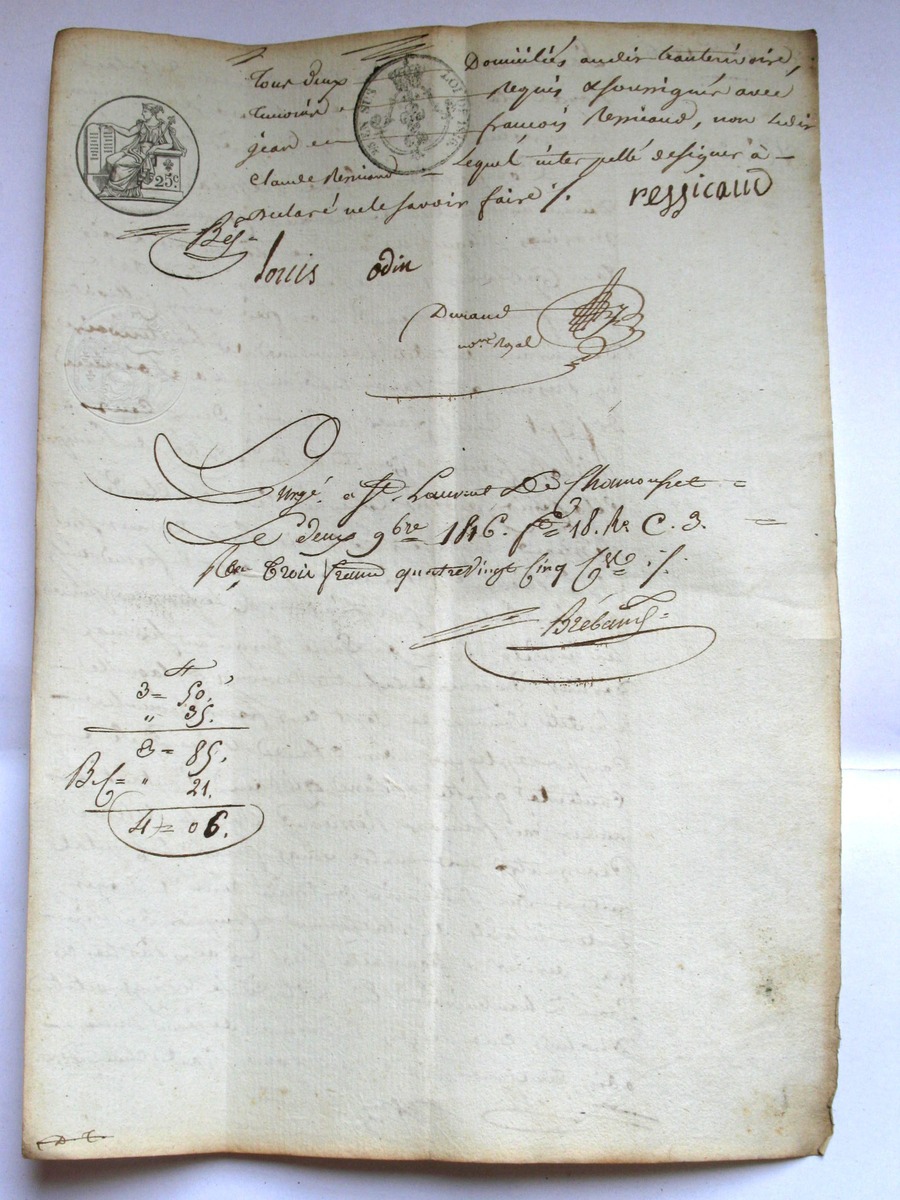 tous deux Domiciliés audit hauterivoire,
témoins requis & soussignés avec
jean françois Ressicaud, non ledit
Claude Ressicaud = Lequel interpellé de signer à
Déclaré ne le savoir faire ./.
ressicaud
25c
LOI DE 1816
louis odin
Durand
no.re Royal
à St Laurent De Chamousset =
Le deux 9bre 1816. fo 18. Ro C. 3. =
Trois francs quatre vingt Cinq Cmes ./.
Brébant
3 = 50,
" 35.
3 = 85,
" 21.
4 = 06.